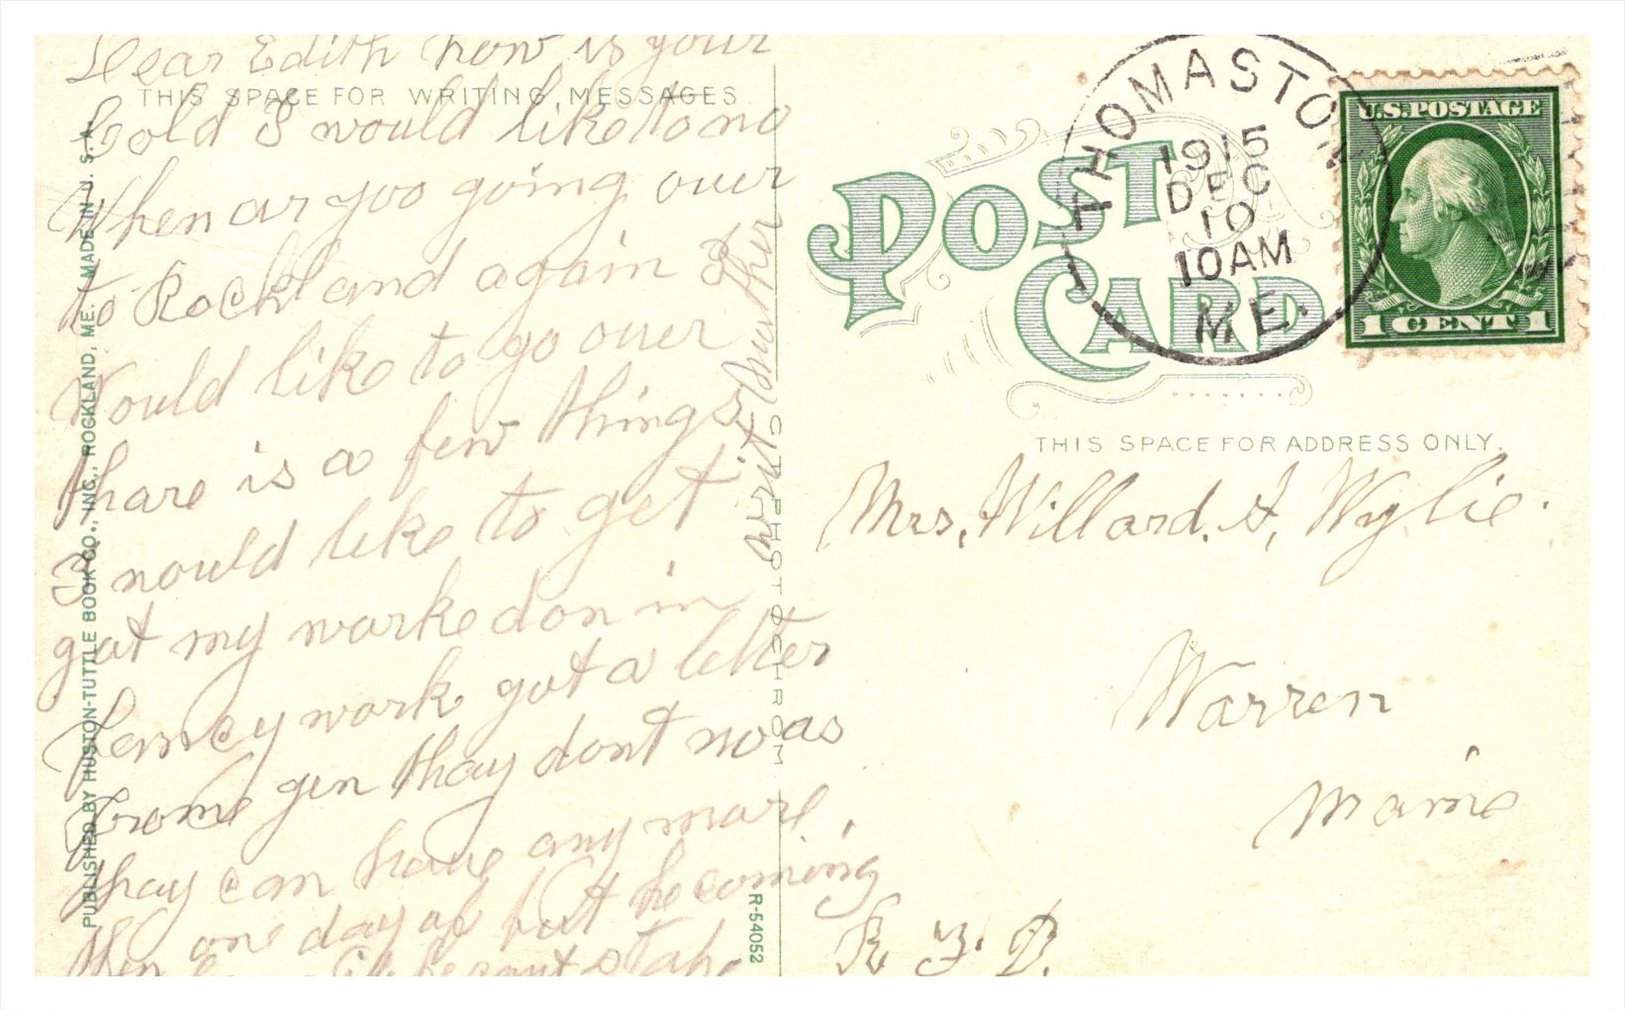 Dear Edith how is your
THIS SPACE FOR WRITING MESSAGES
Cold I would like to no
When ar yoo going over
to Rockland again I
Would like to go over
thare is a few things
I would like to get
gat my worke don in
fancy work got a letter
From gen thay dont no as
thay can have any more.
then one day of but he coming
cant stake
writ
PUBLISHED BY HUSTON-TUTTLE BOOK CO., INC., ROCKLAND, ME. MADE IN U. S. A.
C. T. PHOTOCHROM
R-54052
POST
CARD
THOMASTON
1915
DEC
10
10AM
ME.
U.S. POSTAGE
1 CENT 1
THIS SPACE FOR ADDRESS ONLY.
Mrs. Willard. A, Wylie.
Warren
Maine
R. F. D.